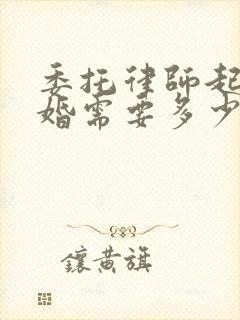 委托律師起
婚需要多少
鑲黃旗